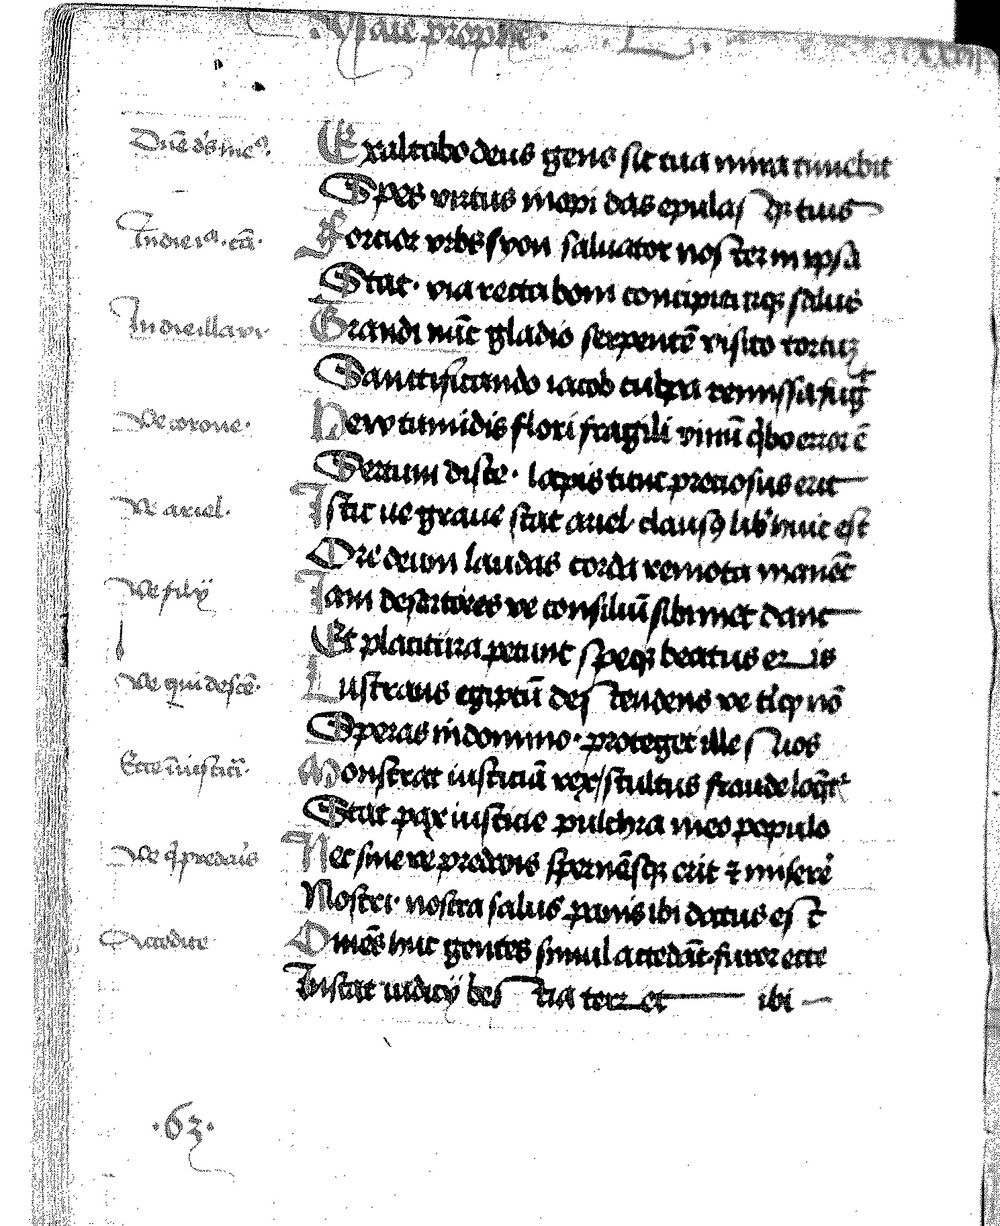 .Ysaie prophe. . L . xxiij
Dn̄e ds me9. Exaltabo deus gens sic tua mira timebit
Spes virtus inopi das epulas qz tuis
In die ia. cā. Fortior vrbs syon saluator noster in ipsa
Stat. via recta boni concipiturqz salus
In die illa vi Grandi nūc gladio serpentē visito tortuz
Sanctificando iacob culpa remissa fugit
Ve corone. Hew tumidis flori fragili vinū qbo error ē
Sertum disce. lapis tunc preciosus erit
Ve ariel. Istic ue graue stat ariel clausꝫ lib' huic est
Ore deum laudas corda remota manēt
Ve filij Iam desertores ve consiliū sibimet dant
Et placitura petunt speqz beatus eris
Ve qui descē. Lustrans egiptū des tendens ve nō
Speras in domino. proteget ille suos
Ecce ī iusticī. Monstrat iusticiā rex/stultus fraude loq̄t'
Stat pax iusticie pulchra meo populo
Ve q predaris Nec sine ve predonis spernēsqz erit ⁊ miserē
Nostri. nostra salus panis ibi datus est
Accedite Omēs huc gentes simul accedāt. furor ecce
Instat iudicij bestia terret ibi
.63.